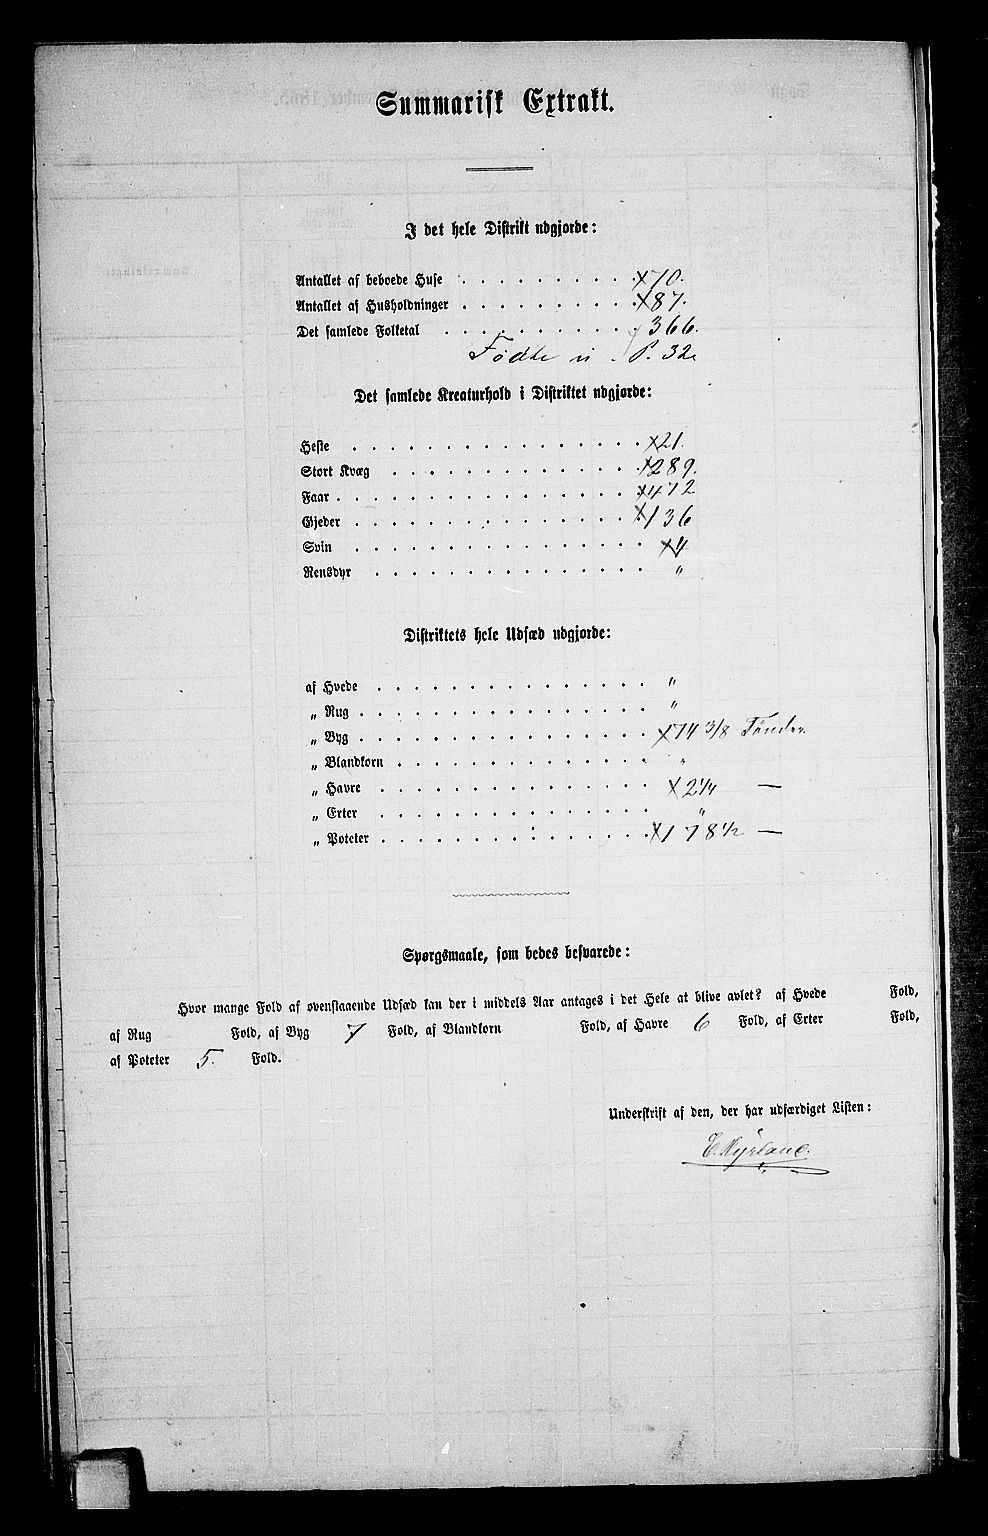 Summarisk Extrakt.
I det hele Distrikt udgjorde:
Antallet af beboede Huse . . . . . . . . . . x70.
Antallet af Husholdninger . . . . . . . . . . x87.
Det samlede Folketal . . . . . . . . . . 366.
Fødte P. 32
Det samlede Kreaturhold i Distriktet udgjorde:
Heste . . . . . . . . . . x21.
Stort Kvæg . . . . . . . . . . x289.
Faar . . . . . . . . . . x472
Gjeder . . . . . . . . . . x136
Svin . . . . . . . . . . x4
Rensdyr . . . . . . . . . . "
Distriktets hele Udsæd udgjorde:
af Hvede . . . . . . . . . . "
„ Rug . . . . . . . . . . "
„ Byg . . . . . . . . . . x74 3/8 Tønder.
„ Blandkorn . . . . . . . . . . "
„ Havre . . . . . . . . . . x2 1/4 —
„ Erter . . . . . . . . . . "
„ Poteter . . . . . . . . . . x178 1/2 —
Spørgsmaale, som bedes besvarede:
Hvor mange Fold af ovenstaaende Udsæd kan der i middels Aar antages i det Hele at blive avlet? af Hvede Fold,
af Rug Fold, af Byg 7 Fold, af Blandkorn Fold, af Havre 6 Fold, af Erter Fold,
af Poteter 5. Fold.
Underskrift af den, der har udfærdiget Listen: